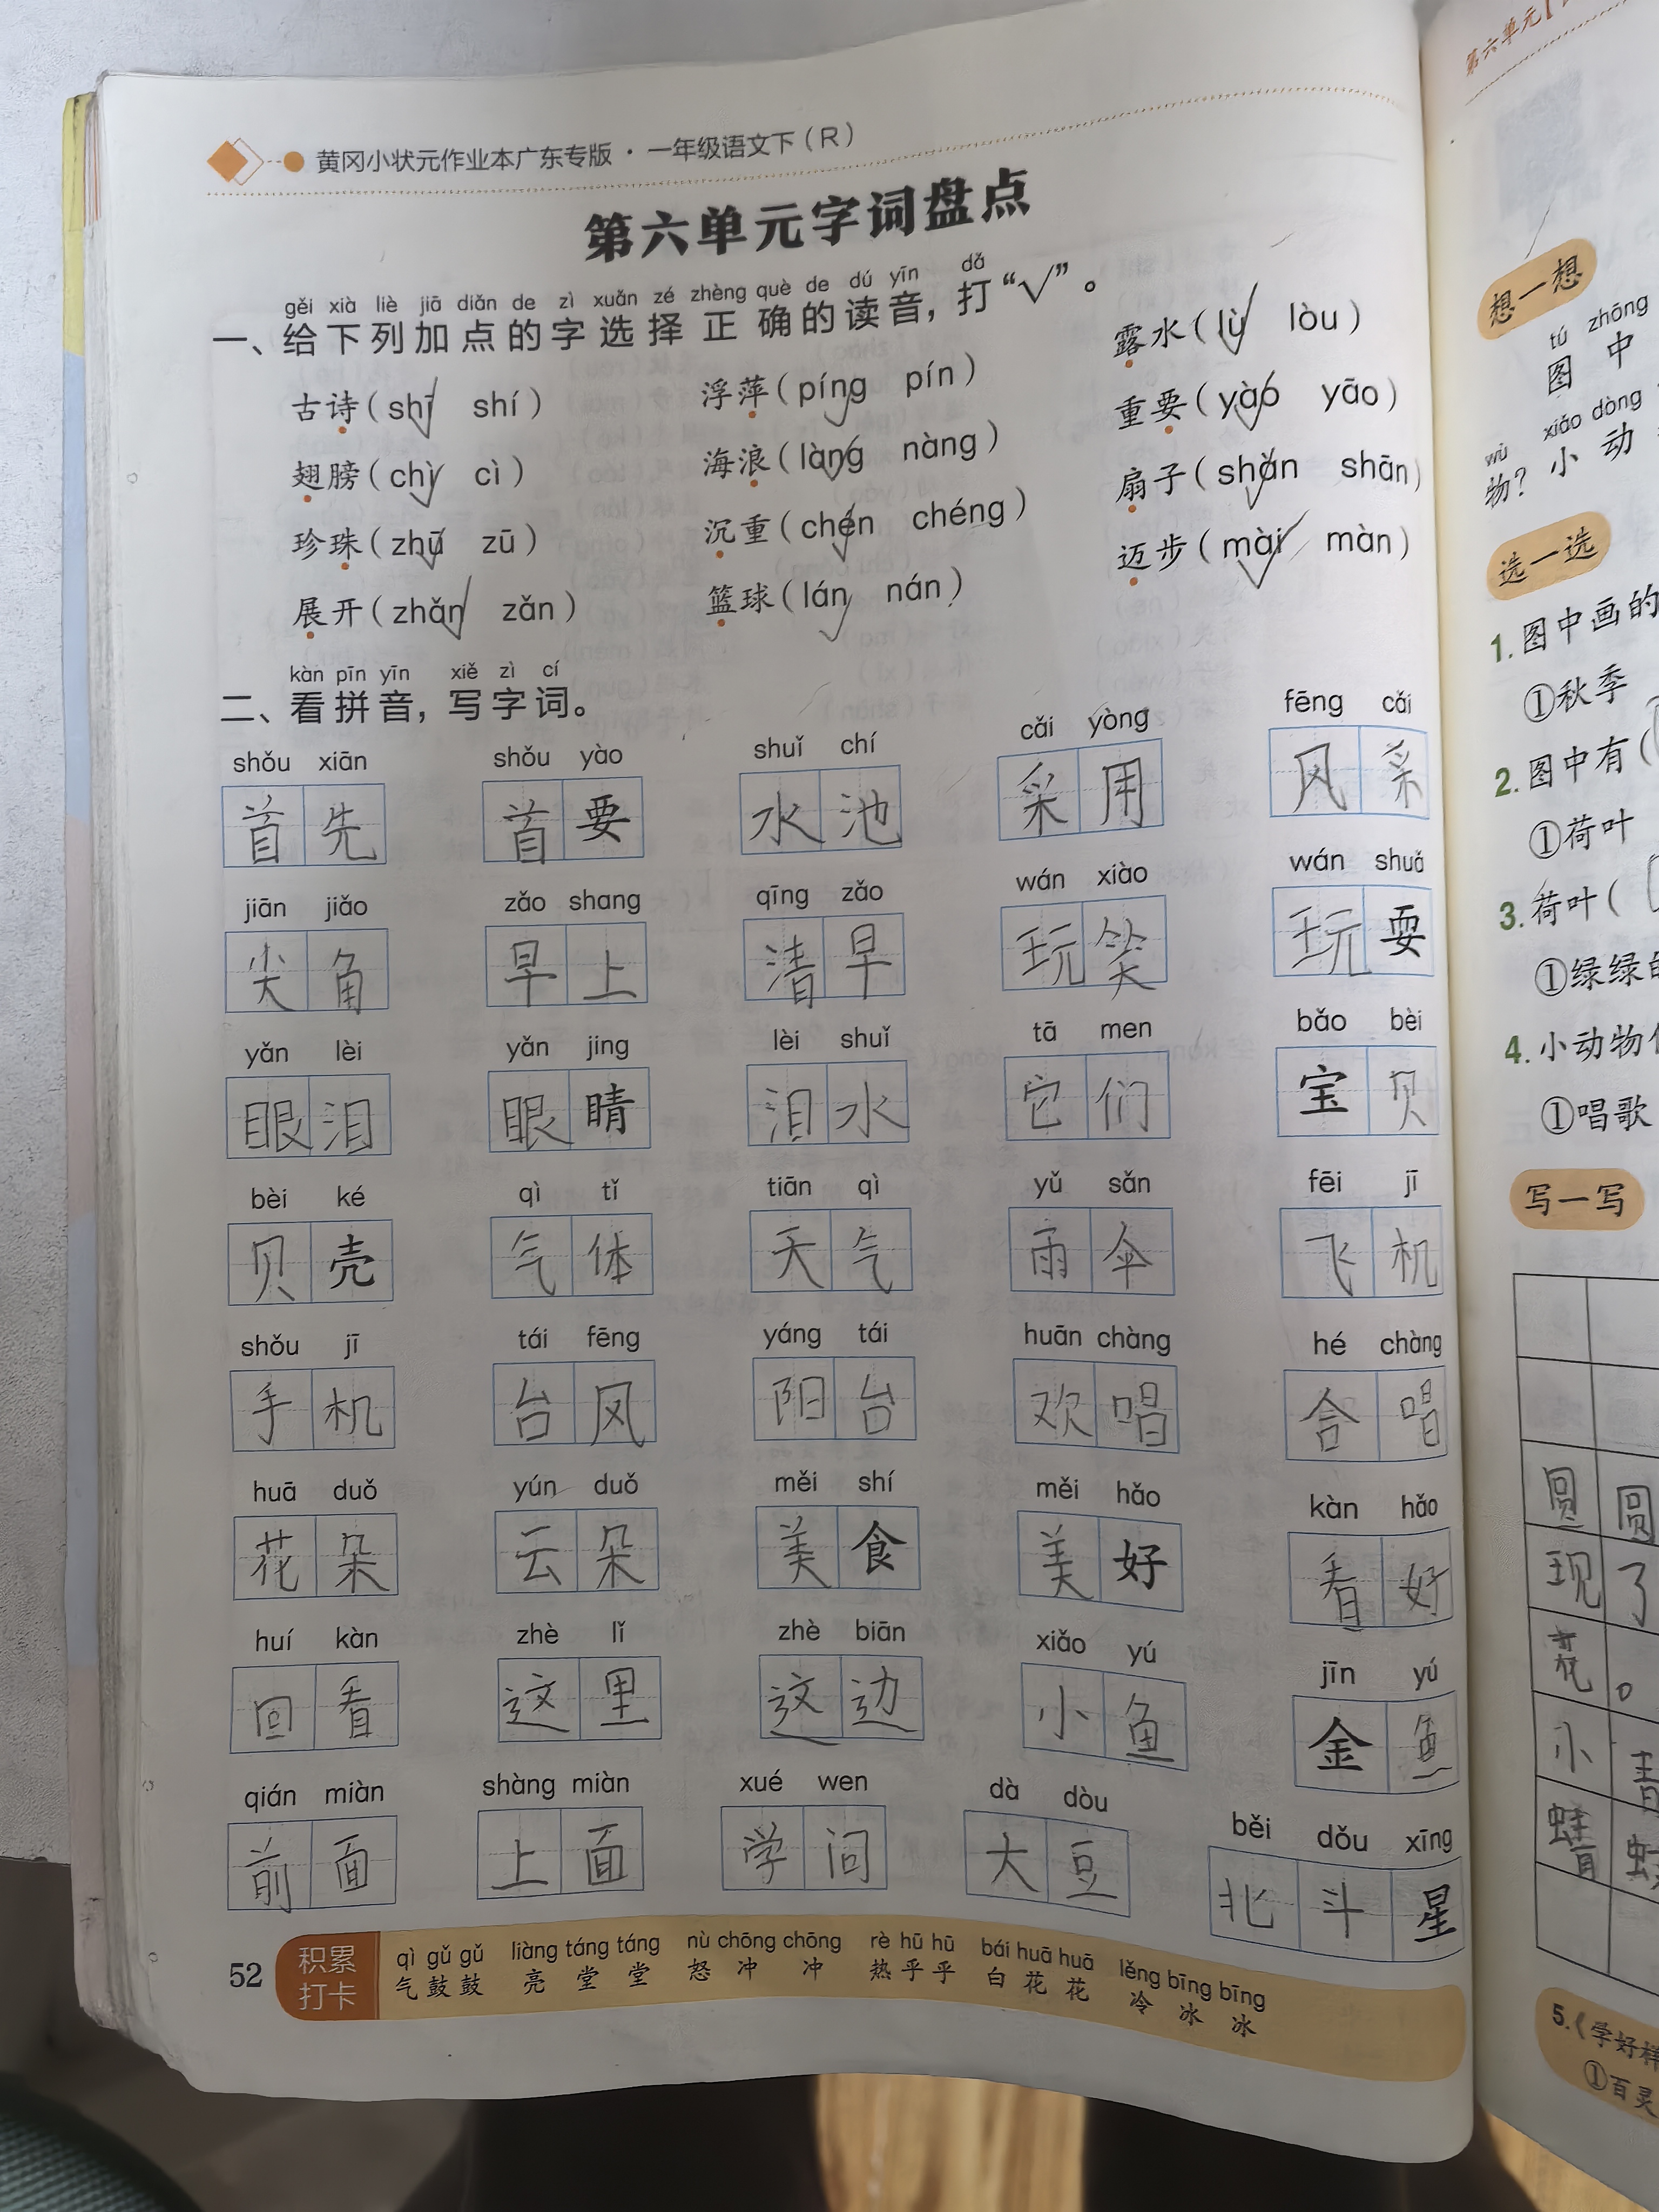 黄冈小状元作业本广东专版·一年级语文下（R）
第六单元字词盘点
gěi xià liè jiā diǎn de zì xuǎn zé zhèng què de dú yīn dǎ
一、给下列加点的字选择正确的读音，打“√”。
古诗（shī√ shí） 浮萍（píng√ pín） 露水（lù√ lòu）
翅膀（chì√ cì） 海浪（làng√ nàng） 重要（yào√ yāo）
珍珠（zhū√ zū） 沉重（chén√ chéng） 扇子（shǎn√ shān）
展开（zhǎn√ zǎn） 篮球（lán√ nán） 迈步（mài√ màn）
kàn pīn yīn xiě zì cí
二、看拼音，写字词。
shǒu xiān shǒu yào shuǐ chí cǎi yòng fēng cǎi
首先 首要 水池 采用 风采
jiān jiǎo zǎo shang qīng zǎo wán xiào wán shuǎ
尖角 早上 清早 玩笑 玩耍
yǎn lèi yǎn jing lèi shuǐ tā men bǎo bèi
眼泪 眼睛 泪水 它们 宝贝
bèi ké qì tǐ tiān qì yǔ sǎn fēi jī
贝壳 气体 天气 雨伞 飞机
shǒu jī tái fēng yáng tái huān chàng hé chàng
手机 台风 阳台 欢唱 合唱
huā duǒ yún duǒ měi shí měi hǎo kàn hǎo
花朵 云朵 美食 美好 看好
huí kàn zhè lǐ zhè biān xiǎo yú jīn yú
回看 这里 这边 小鱼 金鱼
qián miàn shàng miàn xué wen dà dòu běi dǒu xīng
前面 上面 学问 大豆 北斗星
52
积累
打卡
qì gǔ gǔ liàng táng táng nù chōng chōng rè hū hū bái huā huā lěng bīng bīng
气鼓鼓 亮堂堂 怒冲冲 热乎乎 白花花 冷冰冰
第六单元
想一想
tú zhōng
图中
wù xiǎo dòng
物？小动
选一选
1.图中画的
①秋季
2.图中有（
①荷叶
3.荷叶（
①绿绿的
4.小动物
①唱歌
写一写
圆圆
现了
花。
小青
蜻
5.《学好样
①百灵